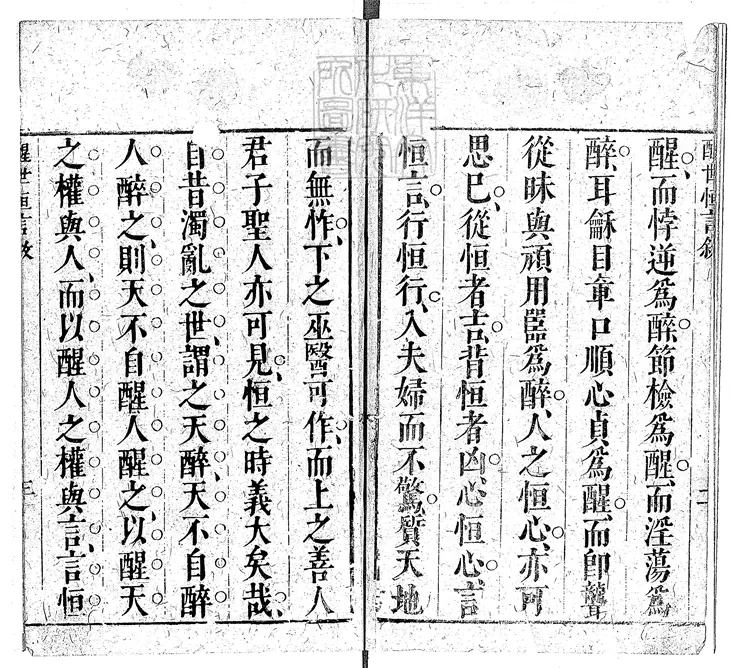 醒世恒言敘　二
醒、而悖逆爲醉、節檢爲醒、而淫蕩爲
醉、耳龢目章、口順心貞爲醒、而卽聾
從昧與頑用嚚爲醉、人之恒心、亦可
思已、從恒者吉、背恒者凶、心恒心、言
恒言、行恒行、入夫婦而不驚、質天地
而無怍、下之巫醫可作、而上之善人
君子聖人亦可見、恒之時義大矣哉、
自昔濁亂之世、謂之天醉、天不自醉
人醉之、則天不自醒、人醒之、以醒天
之權與人、而以醒人之權與言、言恒
醒世恒言敘　三